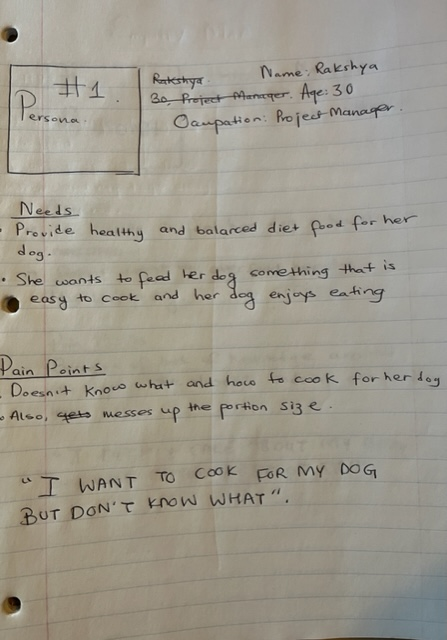 #1.
Persona.
Rakshya.
Name: Rakshya
30. Project Manager. Age: 30
Ocupation: Project Manager.
Needs
• Provide healthy and balanced diet food for her
dog.
• She wants to feed her dog something that is
easy to cook and her dog enjoys eating
Pain Points
• Doesn't know what and how to cook for her dog
• Also, gets messes up the portion size.
"I WANT TO COOK FOR MY DOG
BUT DON'T KNOW WHAT".